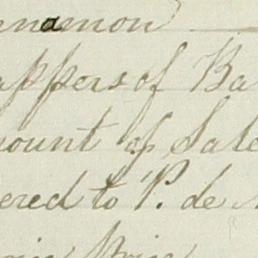 nnamon
appers of Ba
mount of Sale
ered to P. de